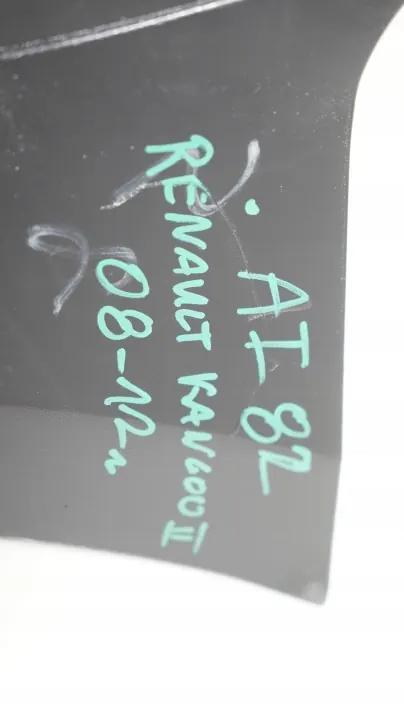 AI 82
RENAULT KANGOO II
08-12r